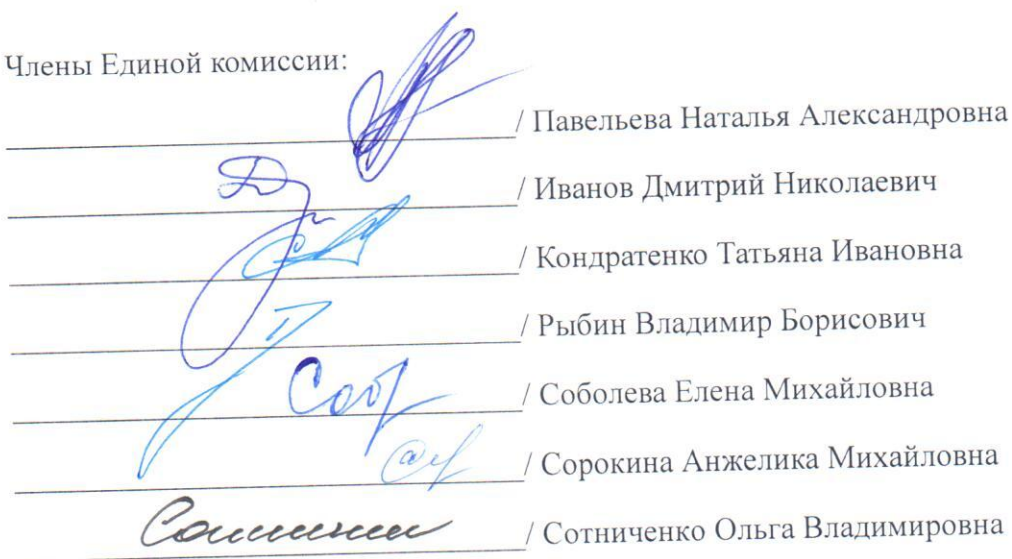 Члены Единой комиссии:
/ Павельева Наталья Александровна
/ Иванов Дмитрий Николаевич
/ Кондратенко Татьяна Ивановна
/ Рыбин Владимир Борисович
/ Соболева Елена Михайловна
/ Сорокина Анжелика Михайловна
/ Сотниченко Ольга Владимировна